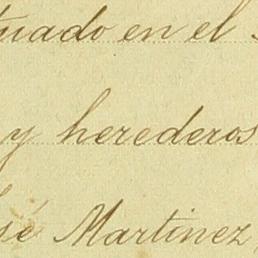 tuado en el
y herederos
sé Martinez,